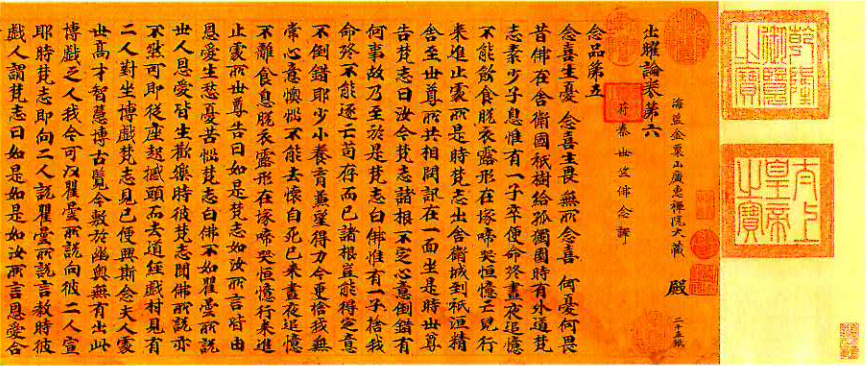 乾隆御覽之寶
太上皇帝之寶
海鹽金粟山廣惠禪院大藏
殿
二十五紙
出曜論卷第六
符秦世竺佛念譯
念品第五
念喜生憂 念喜生畏 無所念喜 何憂何畏
昔佛在舍衛國祇樹給孤獨園時有外道梵
志素少子息惟有一子卒便命終晝夜追憶
不能飲食脫衣露形在塚啼哭恒憶亡兒行
來進止處所是時梵志出舍衛城到祇洹精
舍至世尊所共相問訊在一面坐是時世尊
告梵志曰汝今梵志諸根不定心意倒錯有
何事故乃至於是梵志白佛惟有一子捨我
命終不能逐亡苟存而已諸根豈能得定意
不倒錯耶少小養育冀望得力今更捨我無
常心意懊惱不能去懷自死已來晝夜追憶
不離食息脫衣露形在塚啼哭恒憶行來進
止處所世尊告曰如是梵志如汝所言皆由
恩愛生愁憂苦惱梵志白佛不如瞿曇所說
世人恩愛皆生歡樂時彼梵志聞佛所說亦
不然可即從座起撼頭而去道經戲村見有
二人對坐博戲梵志見已便興斯念夫人處
世高才智慧博古覽今敷於幽奧無有出此
博戲之人我今可以瞿曇所說向彼二人宣
耶時梵志即向二人說瞿曇所說言教時彼
戲人謂梵志曰如是如是如汝所言恩愛合